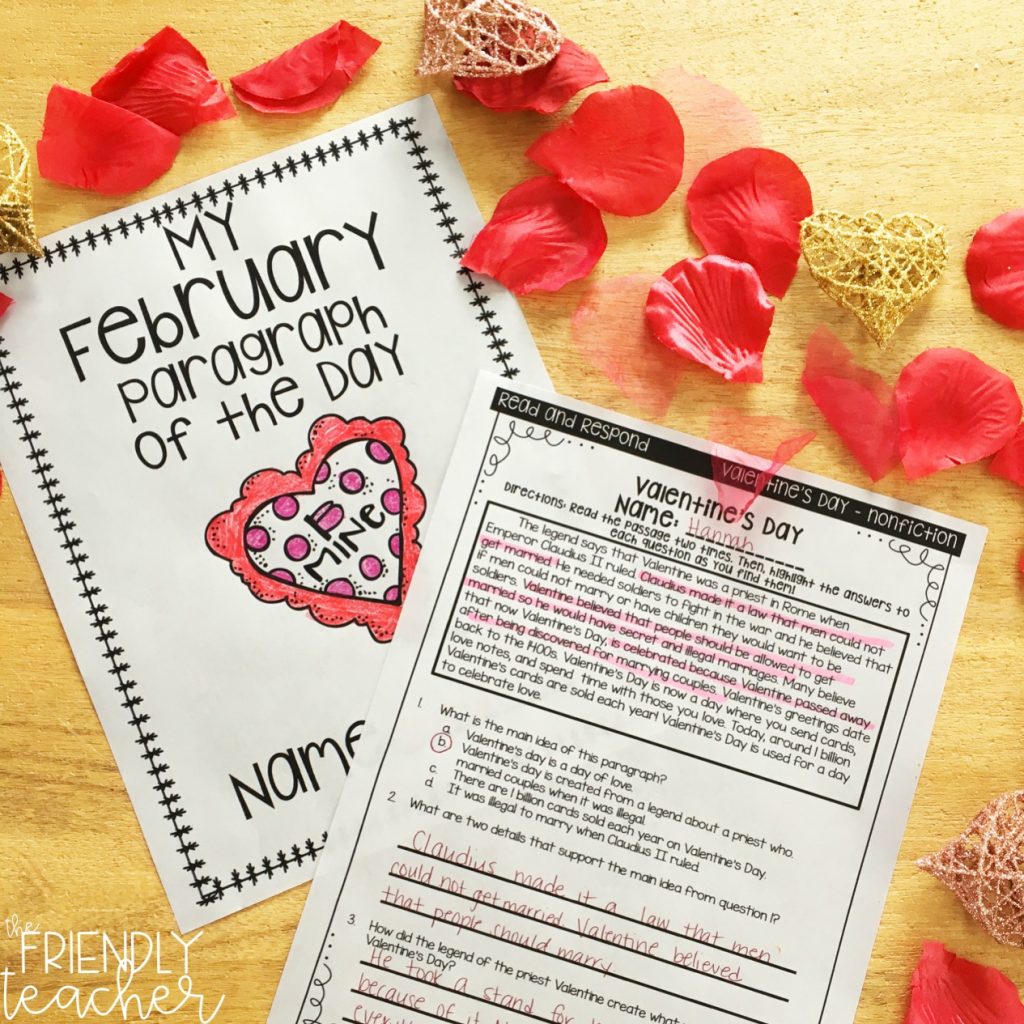 My
February
Paragraph
of the Day
B
MINE
Name
Read and Respond
Valentine's Day - Nonfiction
Valentine's Day
Name: Hannah
Directions: Read the passage two times. Then, highlight the answers to
each question as you find them!
The legend says that Valentine was a priest in Rome when
Emperor Claudius II ruled. Claudius made it a law that men could not
get married. He needed soldiers to fight in the war and he believed that
if men could not marry or have children they would want to be
soldiers. Valentine believed that people should be allowed to get
married so he would have secret and illegal marriages. Many believe
that now Valentine's Day, is celebrated because Valentine passed away
after being discovered for marrying couples. Valentine's greetings date
back to the 1400s. Valentine's Day is now a day where you send cards,
love notes, and spend time with those you love. Today, around 1 billion
Valentine's cards are sold each year! Valentine's Day is used for a day
to celebrate love.
1. What is the main idea of this paragraph?
a. Valentine's day is a day of love.
b. Valentine's day is created from a legend about a priest who
married couples when it was illegal.
c. There are 1 billion cards sold each year on Valentine's Day.
d. It was illegal to marry when Claudius II ruled.
2. What are two details that support the main idea from question 1?
Claudius made it a law that men
could not get married. Valentine believed
that people should marry
3. How did the legend of the priest Valentine create what
Valentine's Day?
He took a stand for
because of it
the
FRIENDLY
teacher